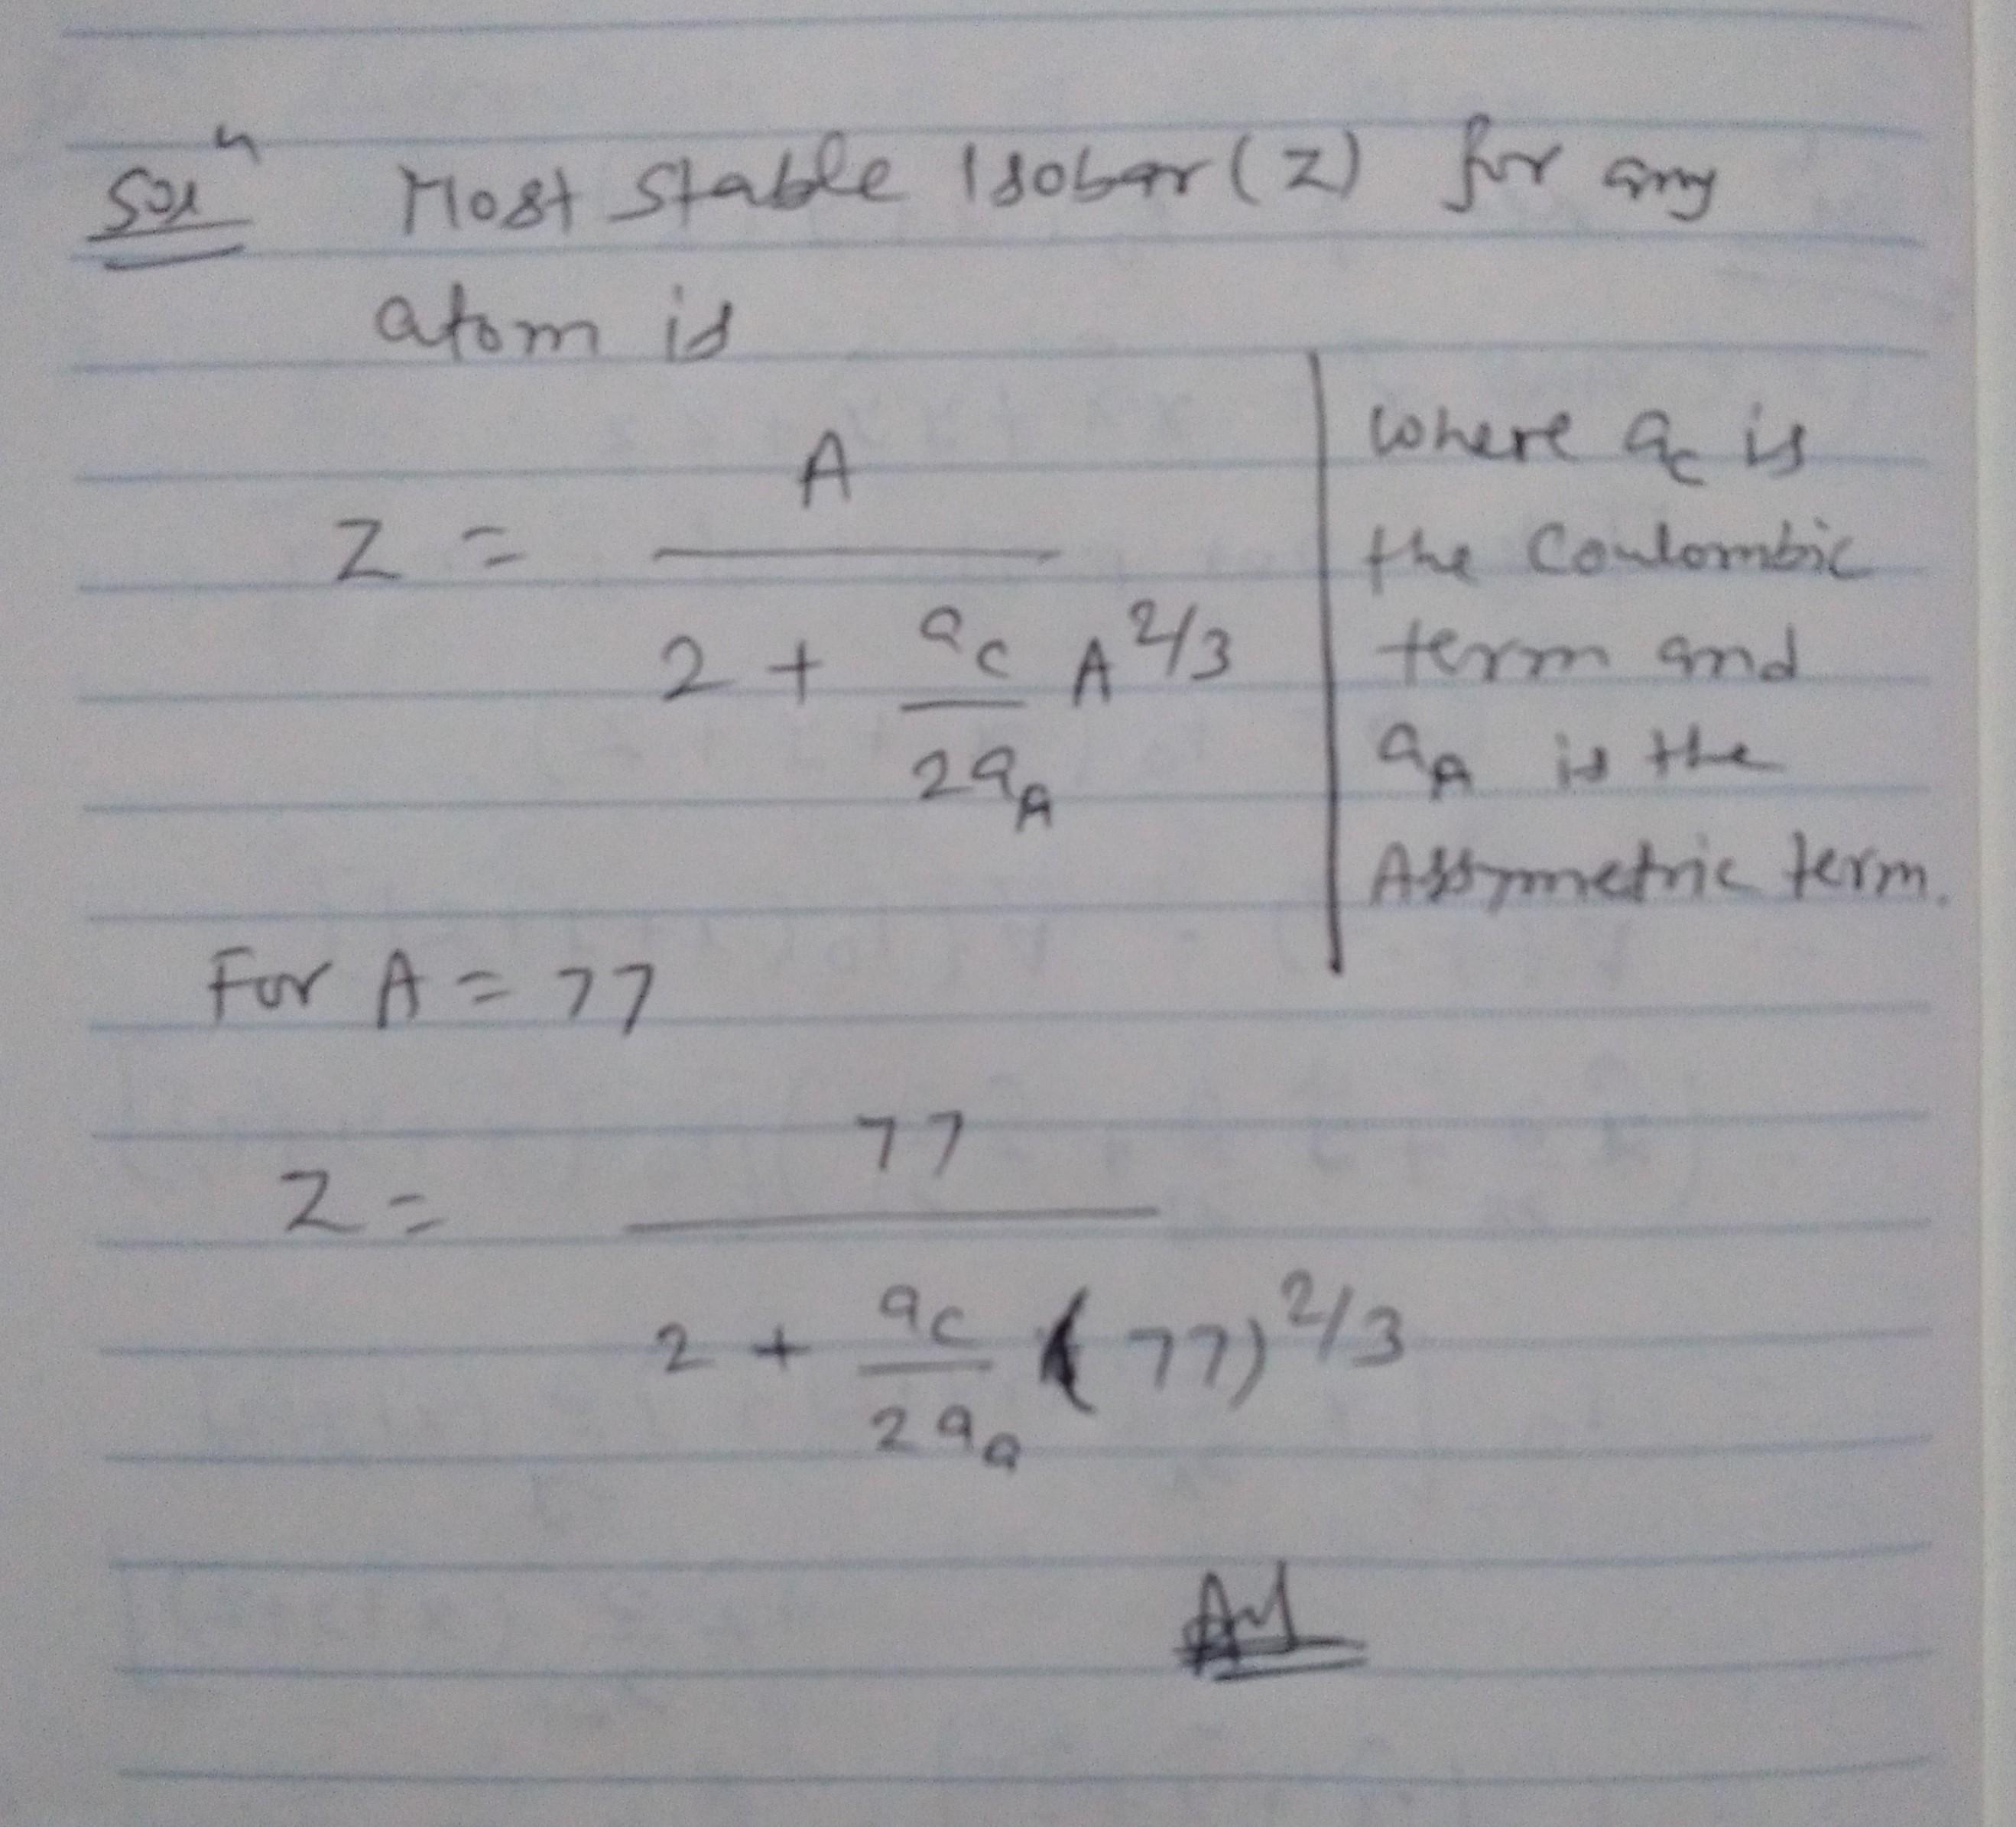 Solⁿ Most Stable Isobar (Z) for any
atom is
Z = A / (2 + (a_C / 2a_A) A^2/3)
where a_c is
the Coulombic
term and
a_A is the
Assymetric term.
For A = 77
Z = 77 / (2 + (a_C / 2a_a) (77)^2/3)
Ans